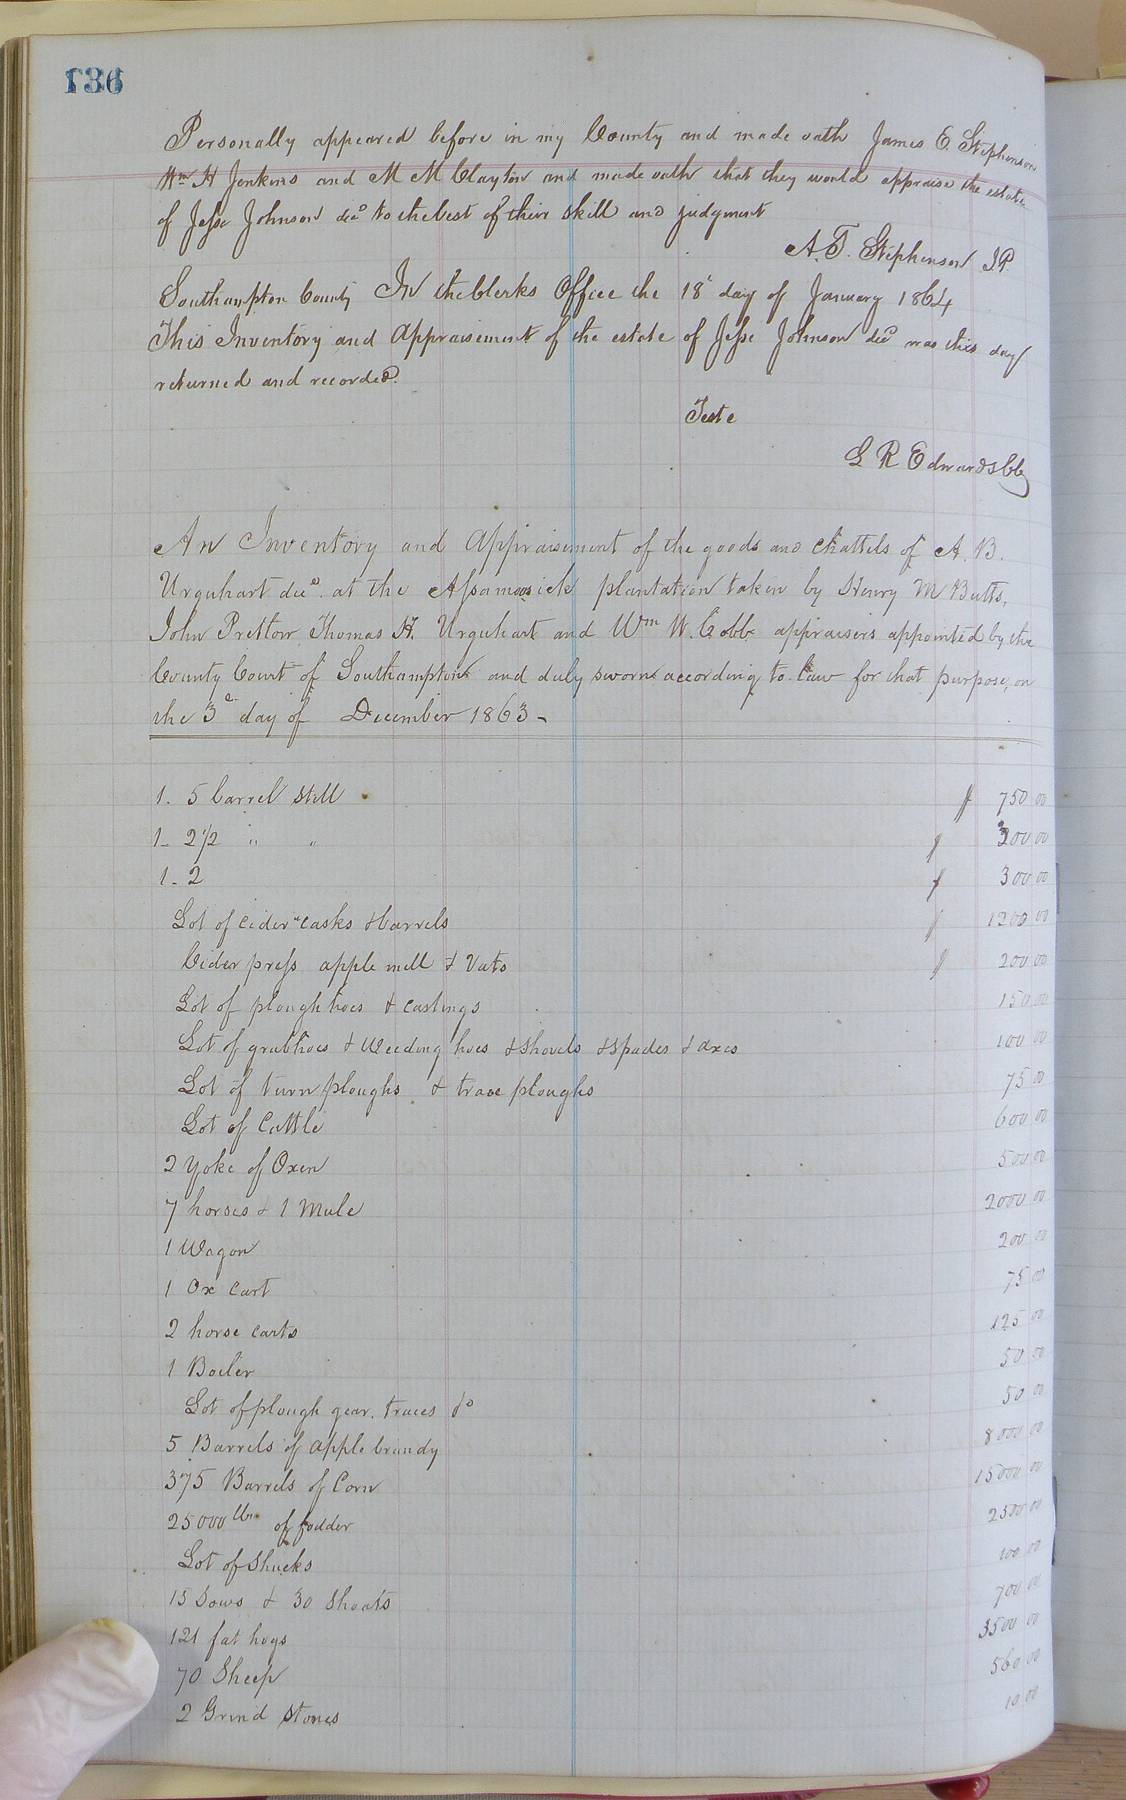 136
Personally appeared before in my County and made oath James E. Stephenson
Wm H Jenkins and M M Clayton and made oath that they would appraise the estate
of Jesse Johnson decd to the best of their skill and judgment
A. T. Stephenson J.P.
Southampton County In the Clerks Office the 18' day of January 1864
This Inventory and Appraisement of the estate of Jesse Johnson decd was this day
returned and recorded.
Teste
L R Edwards Clk
An Inventory and Appraisement of the goods and chattels of A. B.
Urquhart decd. at the Assamoosick plantation taken by Henry M Butts,
John Pretlow Thomas H. Urquhart and Wm W. Cobb appraisers appointed by the
County Court of Southampton and duly sworn according to law for that purpose, on
the 3d day of December 1863 -
1. 5 barrel still $ 750 00
1- 2 1/2 " " $ 300 00
1- 2 $ 300 00
Lot of cider casks & barrels $ 1200 00
Cider press apple mill & Vats $ 200 00
Lot of plough hoes & castings 150 00
Lot of grubhoes & Weeding hoes & shovels & spades & axes 100 00
Lot of turn ploughs & trace ploughs 75 00
Lot of Cattle 600 00
2 Yoke of Oxen 500 00
7 horses & 1 Mule 2000 00
1 Wagon 200 00
1 Ox Cart 75 00
2 horse carts 125 00
1 Boiler 50 00
Lot of plough gear. traces &c 50 00
5 Barrels of apple brandy 8000 00
375 Barrels of Corn 15000 00
25000 lbs of fodder 2500 00
Lot of Shucks 100 00
15 Sows & 30 Shoats 700 00
121 fat hogs 3500 00
70 Sheep 560 00
2 Grind stones 10 00